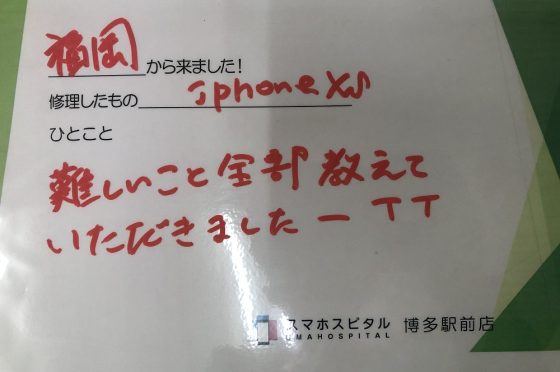 福岡から来ました!
修理したもの iphone XS
ひとこと
難しいこと全部教えて
いただきましたー TT
スマホスピタル 博多駅前店
SMAHOSPITAL